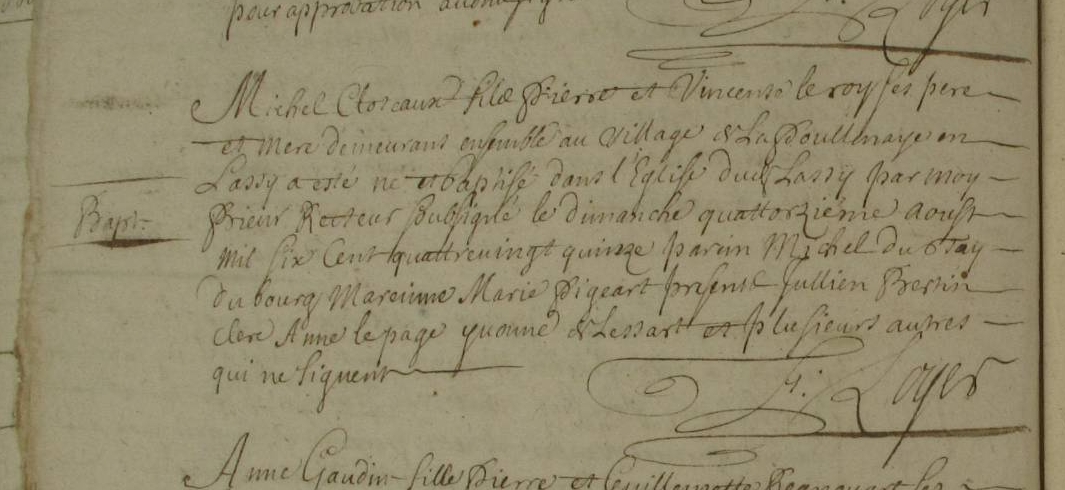 pour approbation
Loyer
Michel Cloteaux filz Pierre et Vincense le roy ses pere
et mere demeurans ensemble au village de La Poullenaye en
Lassy a esté né et baptisé dans l'Eglise dud Lassy par moy
Bapt.
Prieur Recteur soubsigné le dimanche quattorziéme Aoust
mil six cent quattrevingt quinze parin Michel du
du bourg Mareinne Marie Pigeart presents Jullien Bertin
clerc Anne le page yvonne de Lessart et plusieurs autres
qui ne signent
F. Loyer
Anne Gaudin fille Pierre et Guillemette